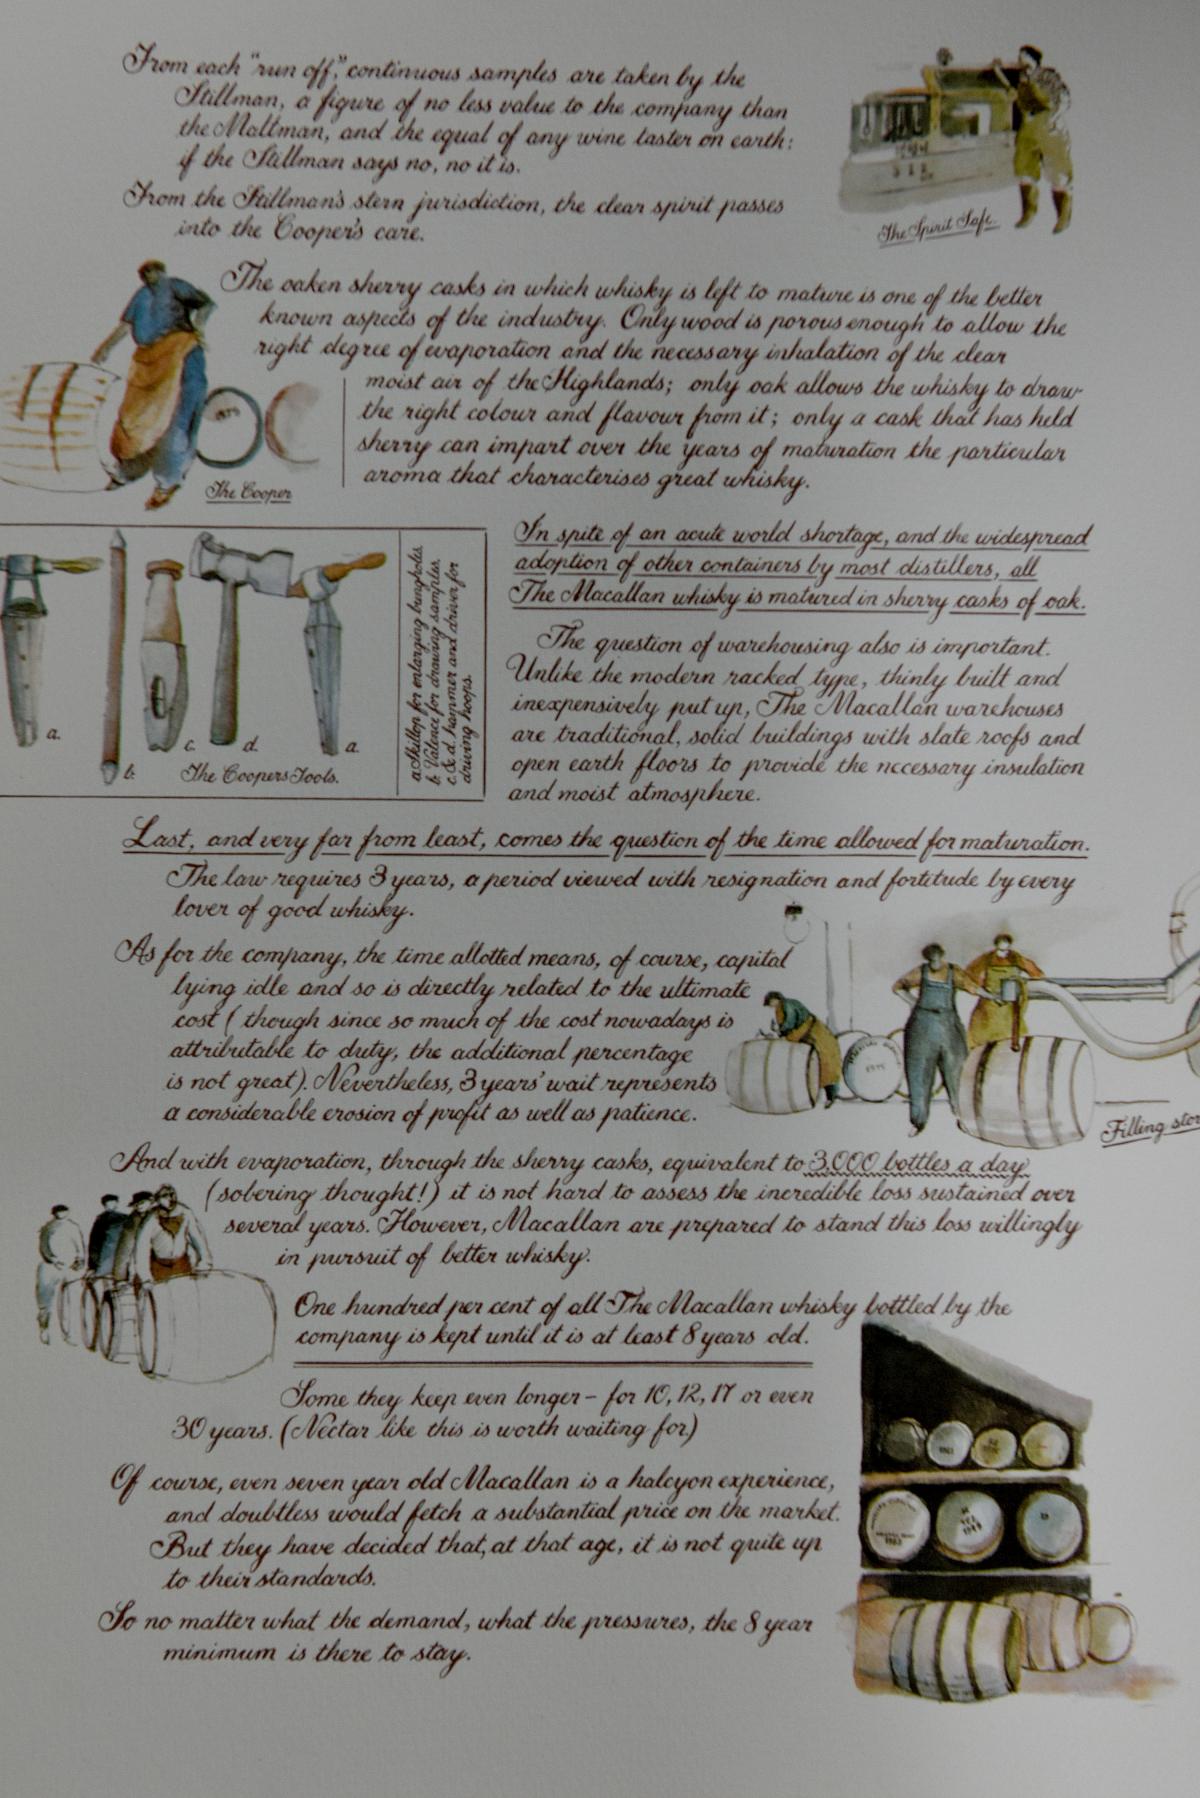 From each "run off," continuous samples are taken by the
Stillman, a figure of no less value to the company than
the Maltman, and the equal of any wine taster on earth:
if the Stillman says no, no it is.
From the Stillman's stern jurisdiction, the clear spirit passes
into the Cooper's care.
The Spirit Safe.
The oaken sherry casks in which whisky is left to mature is one of the better
known aspects of the industry. Only wood is porous enough to allow the
right degree of evaporation and the necessary inhalation of the clear
moist air of the Highlands; only oak allows the whisky to draw
the right colour and flavour from it; only a cask that has held
sherry can impart over the years of maturation the particular
aroma that characterises great whisky.
The Cooper
In spite of an acute world shortage, and the widespread
adoption of other containers by most distillers, all
The Macallan whisky is matured in sherry casks of oak.
a.
b.
c.
d.
a.
The Coopers Tools.
a. Skillop for enlarging bungholes.
b. Valence for drawing samples.
c. & d. hammer and driver for
driving hoops.
The question of warehousing also is important.
Unlike the modern racked type, thinly built and
inexpensively put up, The Macallan warehouses
are traditional, solid buildings with slate roofs and
open earth floors to provide the necessary insulation
and moist atmosphere.
Last, and very far from least, comes the question of the time allowed for maturation.
The law requires 3 years, a period viewed with resignation and fortitude by every
lover of good whisky.
As for the company, the time allotted means, of course, capital
lying idle and so is directly related to the ultimate
cost (though since so much of the cost nowadays is
attributable to duty, the additional percentage
is not great). Nevertheless, 3 years' wait represents
a considerable erosion of profit as well as patience.
Filling stor
And with evaporation, through the sherry casks, equivalent to 3,000 bottles a day
(sobering thought!) it is not hard to assess the incredible loss sustained over
several years. However, Macallan are prepared to stand this loss willingly
in pursuit of better whisky.
One hundred per cent of all The Macallan whisky bottled by the
company is kept until it is at least 8 years old.
Some they keep even longer – for 10, 12, 17 or even
30 years. (Nectar like this is worth waiting for)
Of course, even seven year old Macallan is a halcyon experience,
and doubtless would fetch a substantial price on the market.
But they have decided that, at that age, it is not quite up
to their standards.
So no matter what the demand, what the pressures, the 8 year
minimum is there to stay.